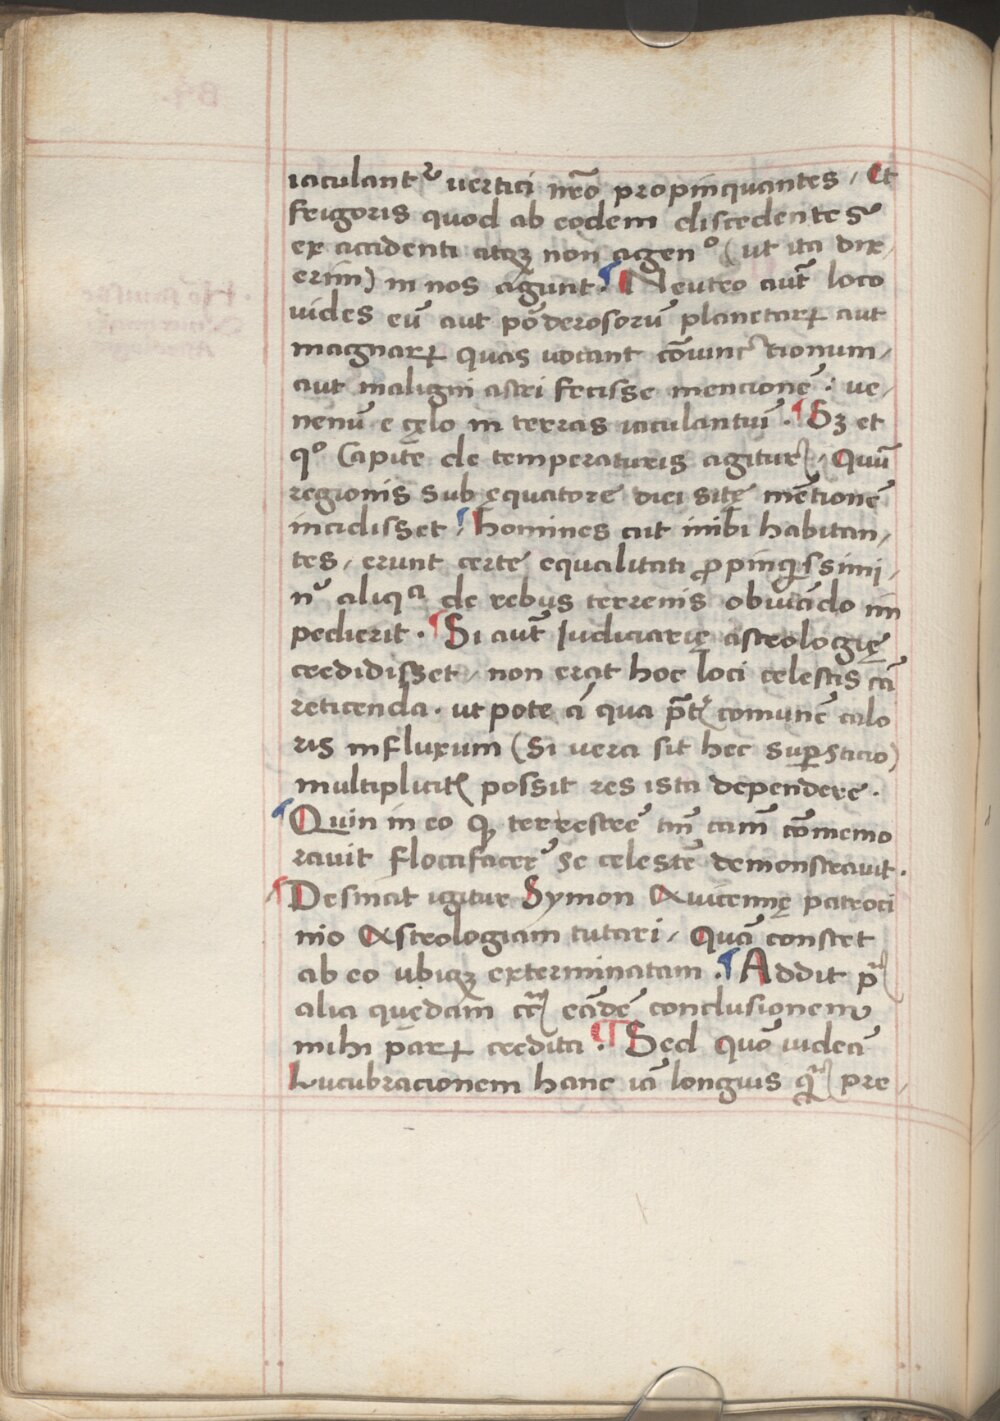 iaculant᷑ vertici nr̃o propinquantes / Et
frigoris quod ab eodem discedentes᷑
ex accidenti atqꝫ non agenº (ut ita dix/
erim) in nos agunt. ¶ Neutro aut̃ loco
uides eũ aut põderosorũ planetarꝝ aut
magnarꝝ quas uocant cõiunctionum/
aut maligni astri fecisse mencionẽ: ue/
nenũ e cęlo in terras iaculantiũ. ¶ Sꝫ et
qº Capite de temperaturis agitur, Quũ
regionis sub equatore diei sitę mẽtionẽ
incidisset ¶ homines aut inibi habitan/
tes, erunt certe equalitati ꝓpinquissimi,
nˢ aliqª de rebus terrenis obuiãdo im
pedierit. ¶ Si aut̃ Iudiciarię astrologię
credidisset, non erat hoc loci celestis cã
reticenda. ut pote ã qua p̃t᷑ comunẽ calo
ris influxum (Si vera sit hec suꝑsticio)
multiplicit᷑ possit res ista dependere.
¶ Quin in eo ꝙ terrestrẽ tm̃ cam̃ cõmemo
rauit floccifacer᷑ se celestẽ demonstrauit.
¶ Desinat igitur Symon Auicennę patroci
nio Astrologiam tutari, Quã constet
ab eo ubiqꝫ exterminatam. ¶ Addit p̃
alia quedam cc̃ eãdẽ conclusionem
mihi parꝝ credita. ¶ Sed Quõ uideã
Lucubracionem hanc iã longius q̃ pre/